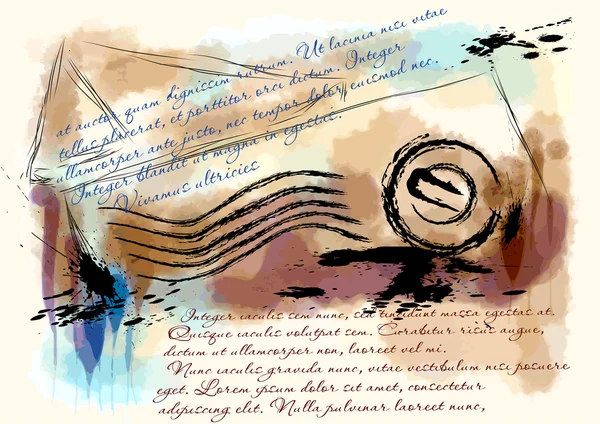 at auctor quam dignissim rutrum. Ut lacinia nisi vitae
tellus placerat, et porttitor orci dictum. Integer
ullamcorper ante justo, nec tempor dolor euismod nec.
Integer blandit ut magna in egestas.
Vivamus ultricies
Integer iaculis sem nunc, sed tincidunt massa egestas at.
Quisque iaculis volutpat sem. Curabitur risus augue,
dictum ut ullamcorper non, laoreet vel mi.
Nunc iaculis gravida nunc, vitae vestibulum nisi posuere
eget. Lorem ipsum dolor sit amet, consectetur
adipiscing elit. Nulla pulvinar laoreet nunc,